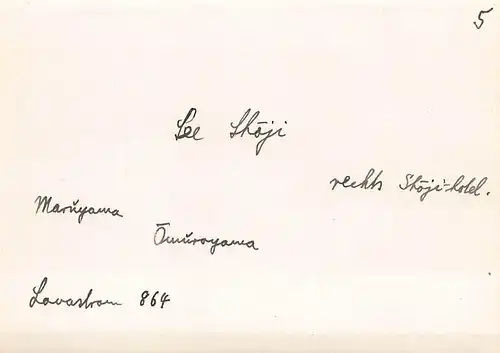 5
See Shōji
rechts Shōji-hotel.
Maruyama
Ōmuroyama
Lavastrom 864